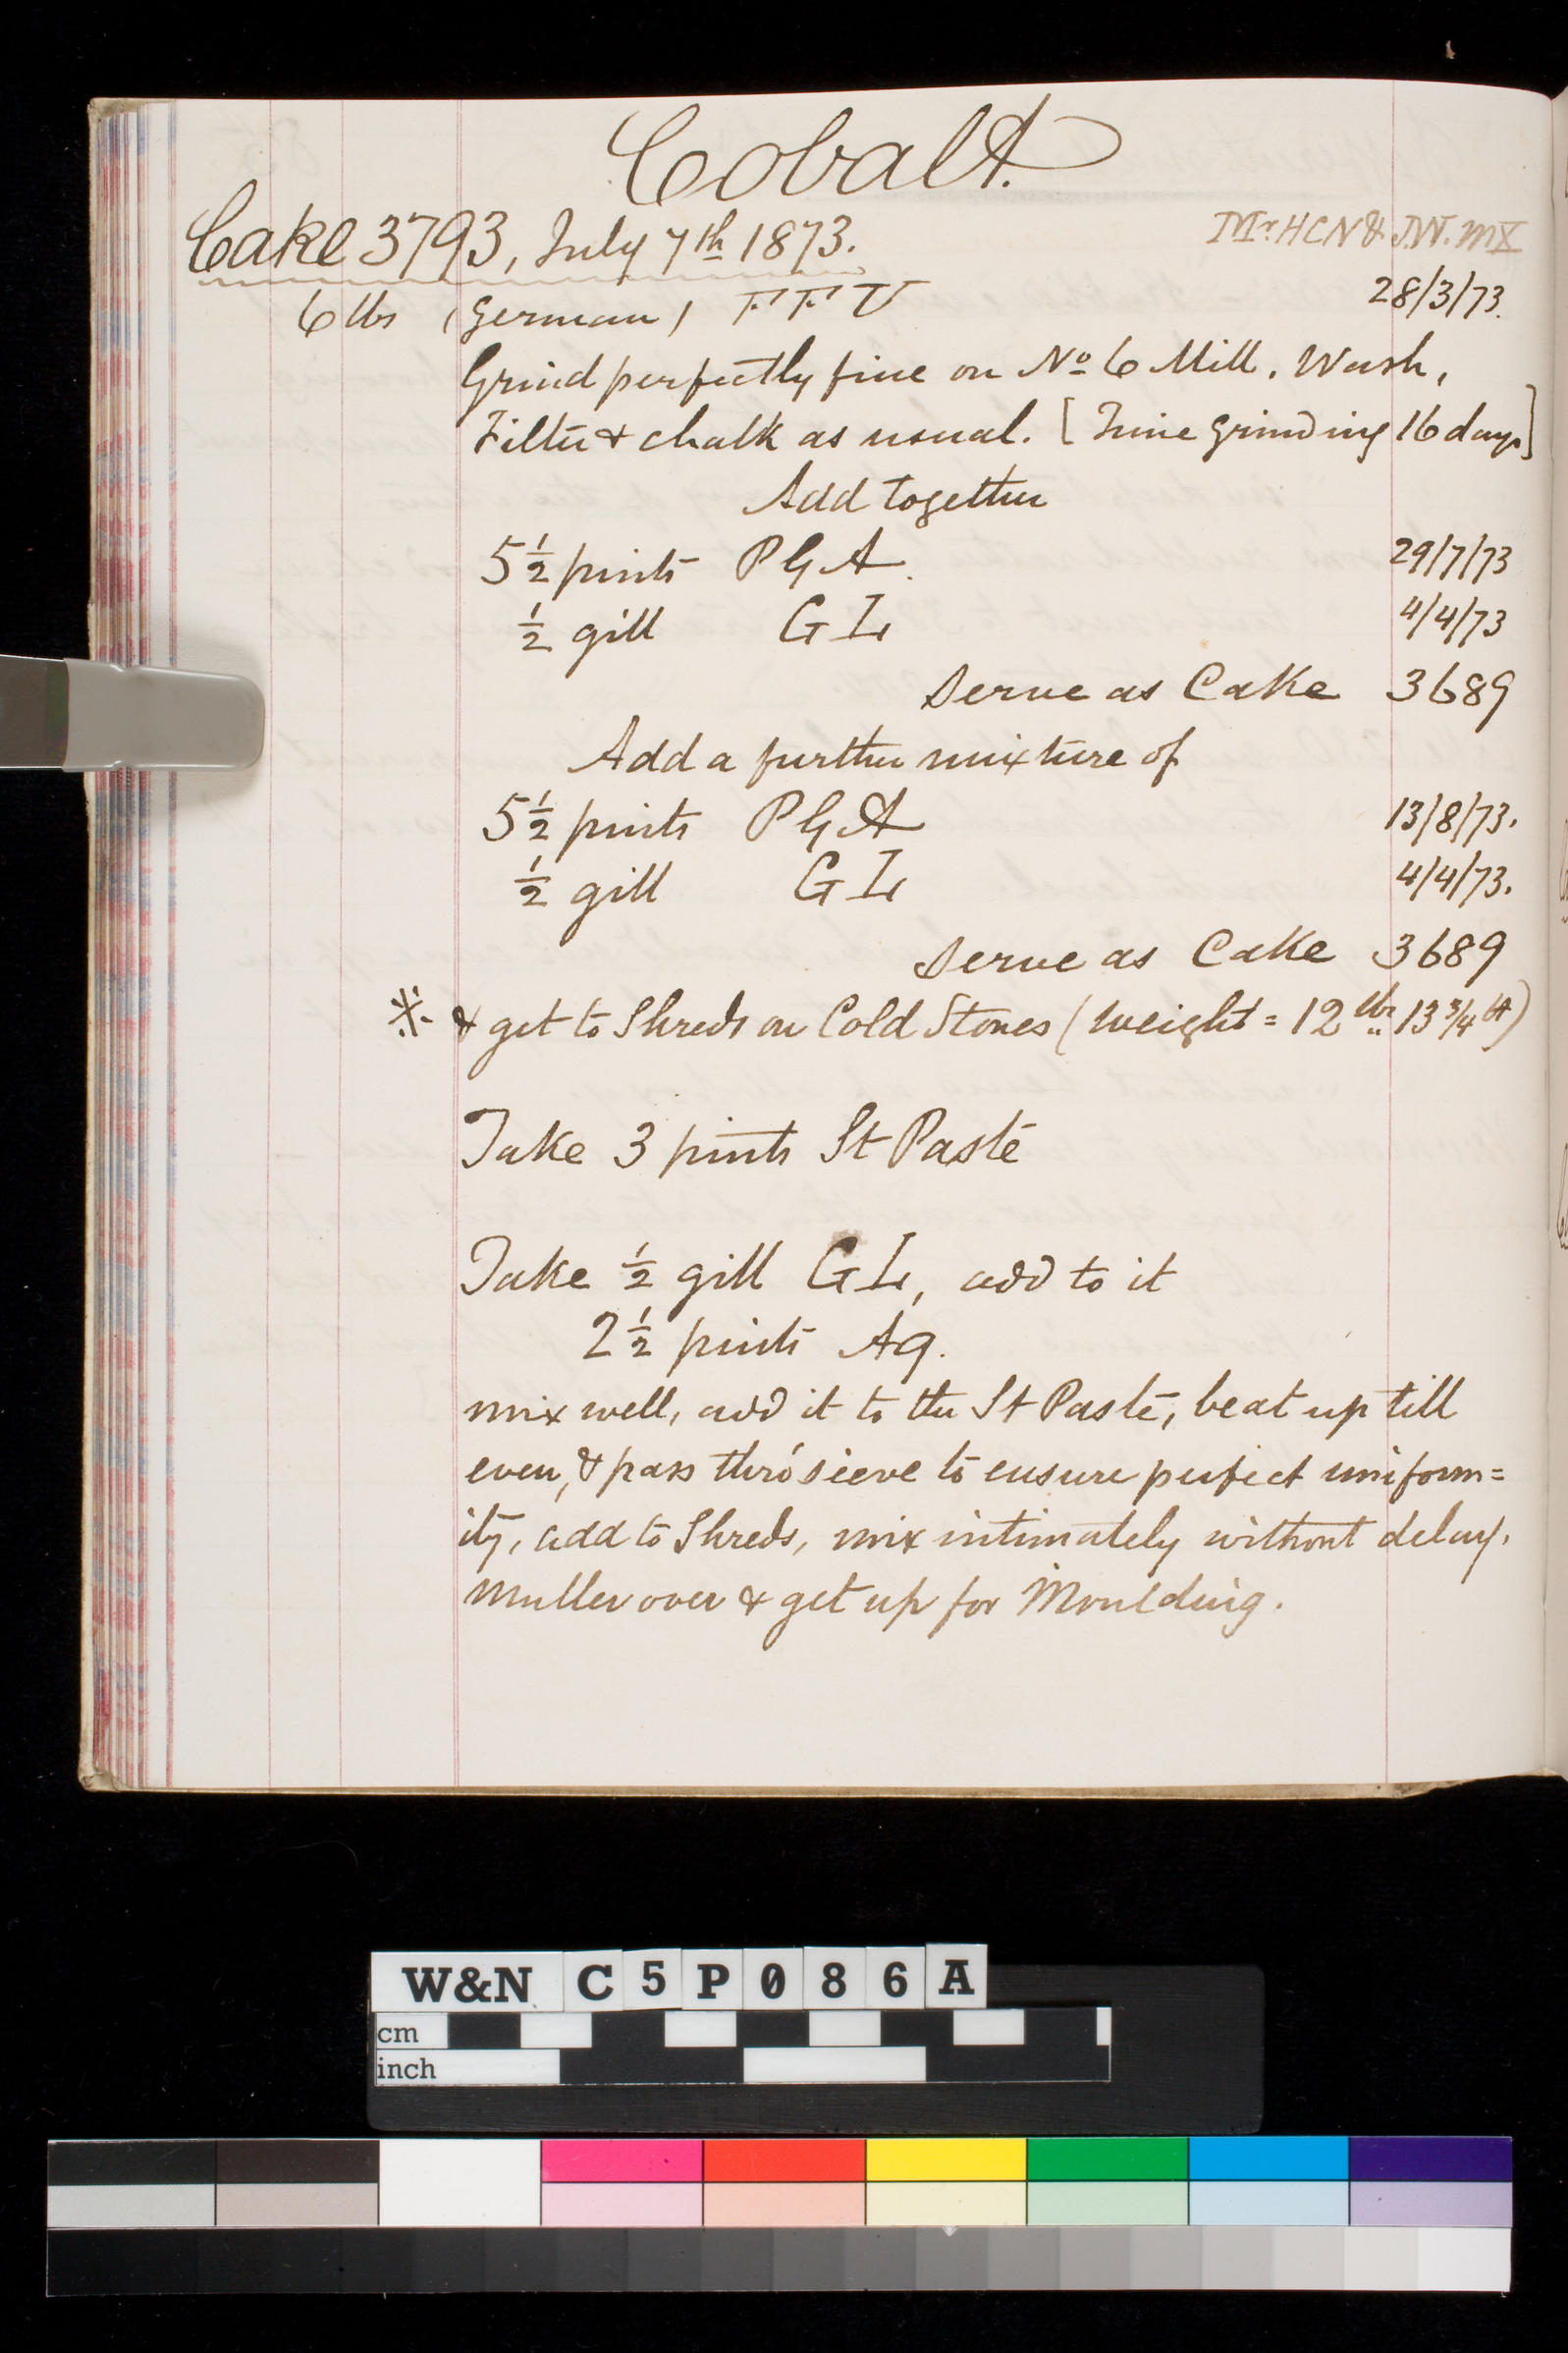 Cobalt.
Cake 3793, July 7th 1873.
Mr. HCN & J.W. MX
6 lbs (German) FFU 28/3/73.
Grind perfectly fine on No 6 Mill. Wash,
Filter & chalk as usual. [Time grinding 16 days]
Add together
5½ pints PGA. 29/7/73
½ gill GL 4/4/73
Serve as Cake 3689
Add a further mixture of
5½ pints PGA 13/8/73.
½ gill GL 4/4/73.
Serve as Cake 3689
※ & get to Shreds on Cold Stones (Weight = 12 lbs 13¾)
Take 3 pints St Paste
Take ½ gill GL, add to it
2½ pints Aq.
mix well, add it to the St Paste, beat up till
even, & pass thro' sieve to ensure perfect uniform=
ity, add to Shreds, mix intimately without delay.
Muller over & get up for Moulding.
W&N C5P086A
cm
inch